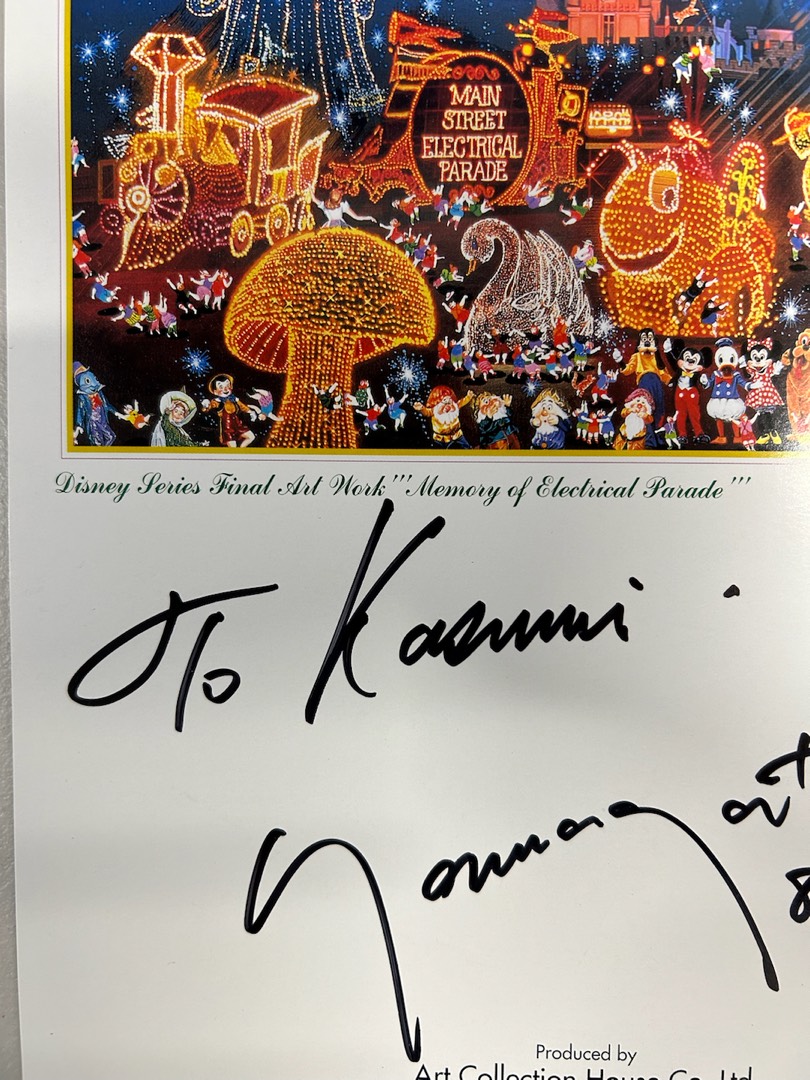 MAIN
STREET
ELECTRICAL
PARADE
Disney Series Final Art Work '''Memory of Electrical Parade'''
To Kazumi
Produced by
Art Collection House Co., Ltd